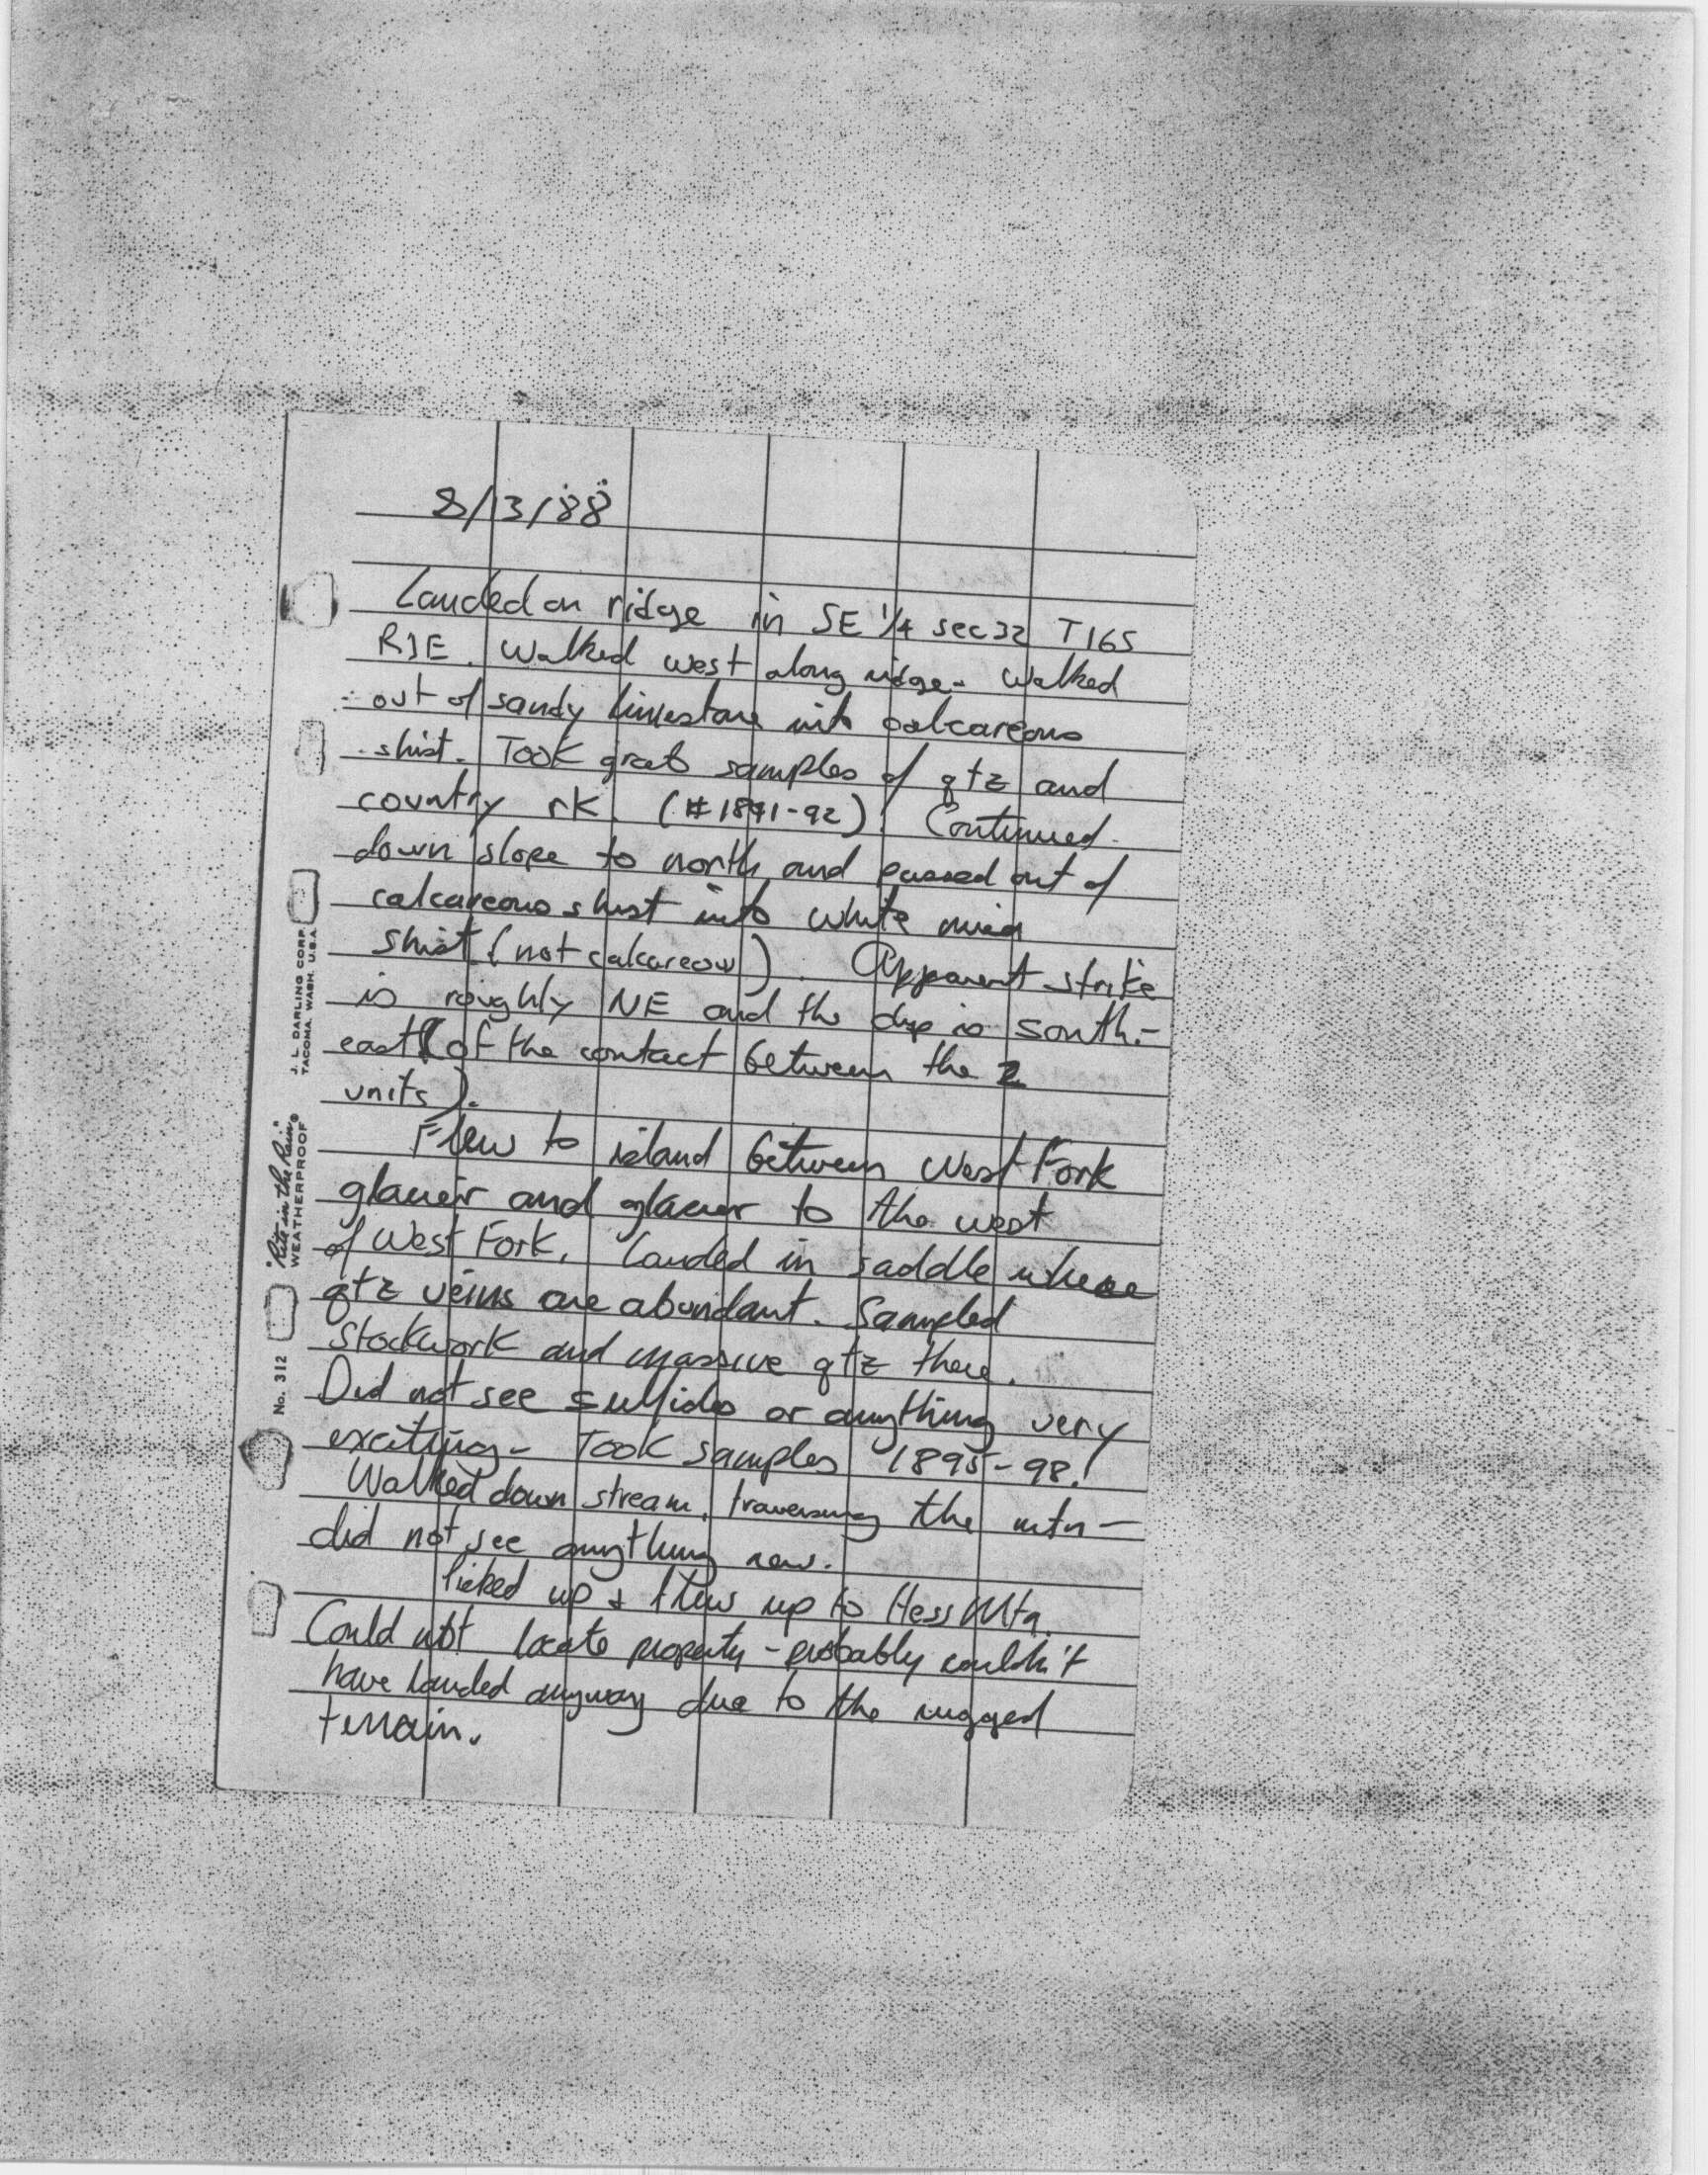 8/3/88
Landed on ridge in SE 1/4 sec 32 T16S
R1E. Walked west along ridge - Walked
out of sandy limestone into calcareous
shist. Took grab samples of qtz and
country rk. (#1891-92). Continued
down slope to north and passed out of
calcareous shist into white mica
shist (not calcareous). Apparent strike
is roughly NE and the dip is south-
east (of the contact between the 2
units).
Flew to island between West Fork
glacier and glacier to the west
of West Fork. Landed in saddle where
qtz veins are abundant. Sampled
stockwork and massive qtz there.
Did not see sulfides or anything very
exciting - Took samples 1895-98.
Walked down stream, traversing the mtn -
did not see anything new.
Picked up & flew up to Hess Mtn.
Could not locate property - probably couldn't
have landed anyway due to the rugged
terrain.
J. L. DARLING CORP.
TACOMA, WASH. U.S.A.
"Rite in the Rain"®
WEATHERPROOF
No. 312